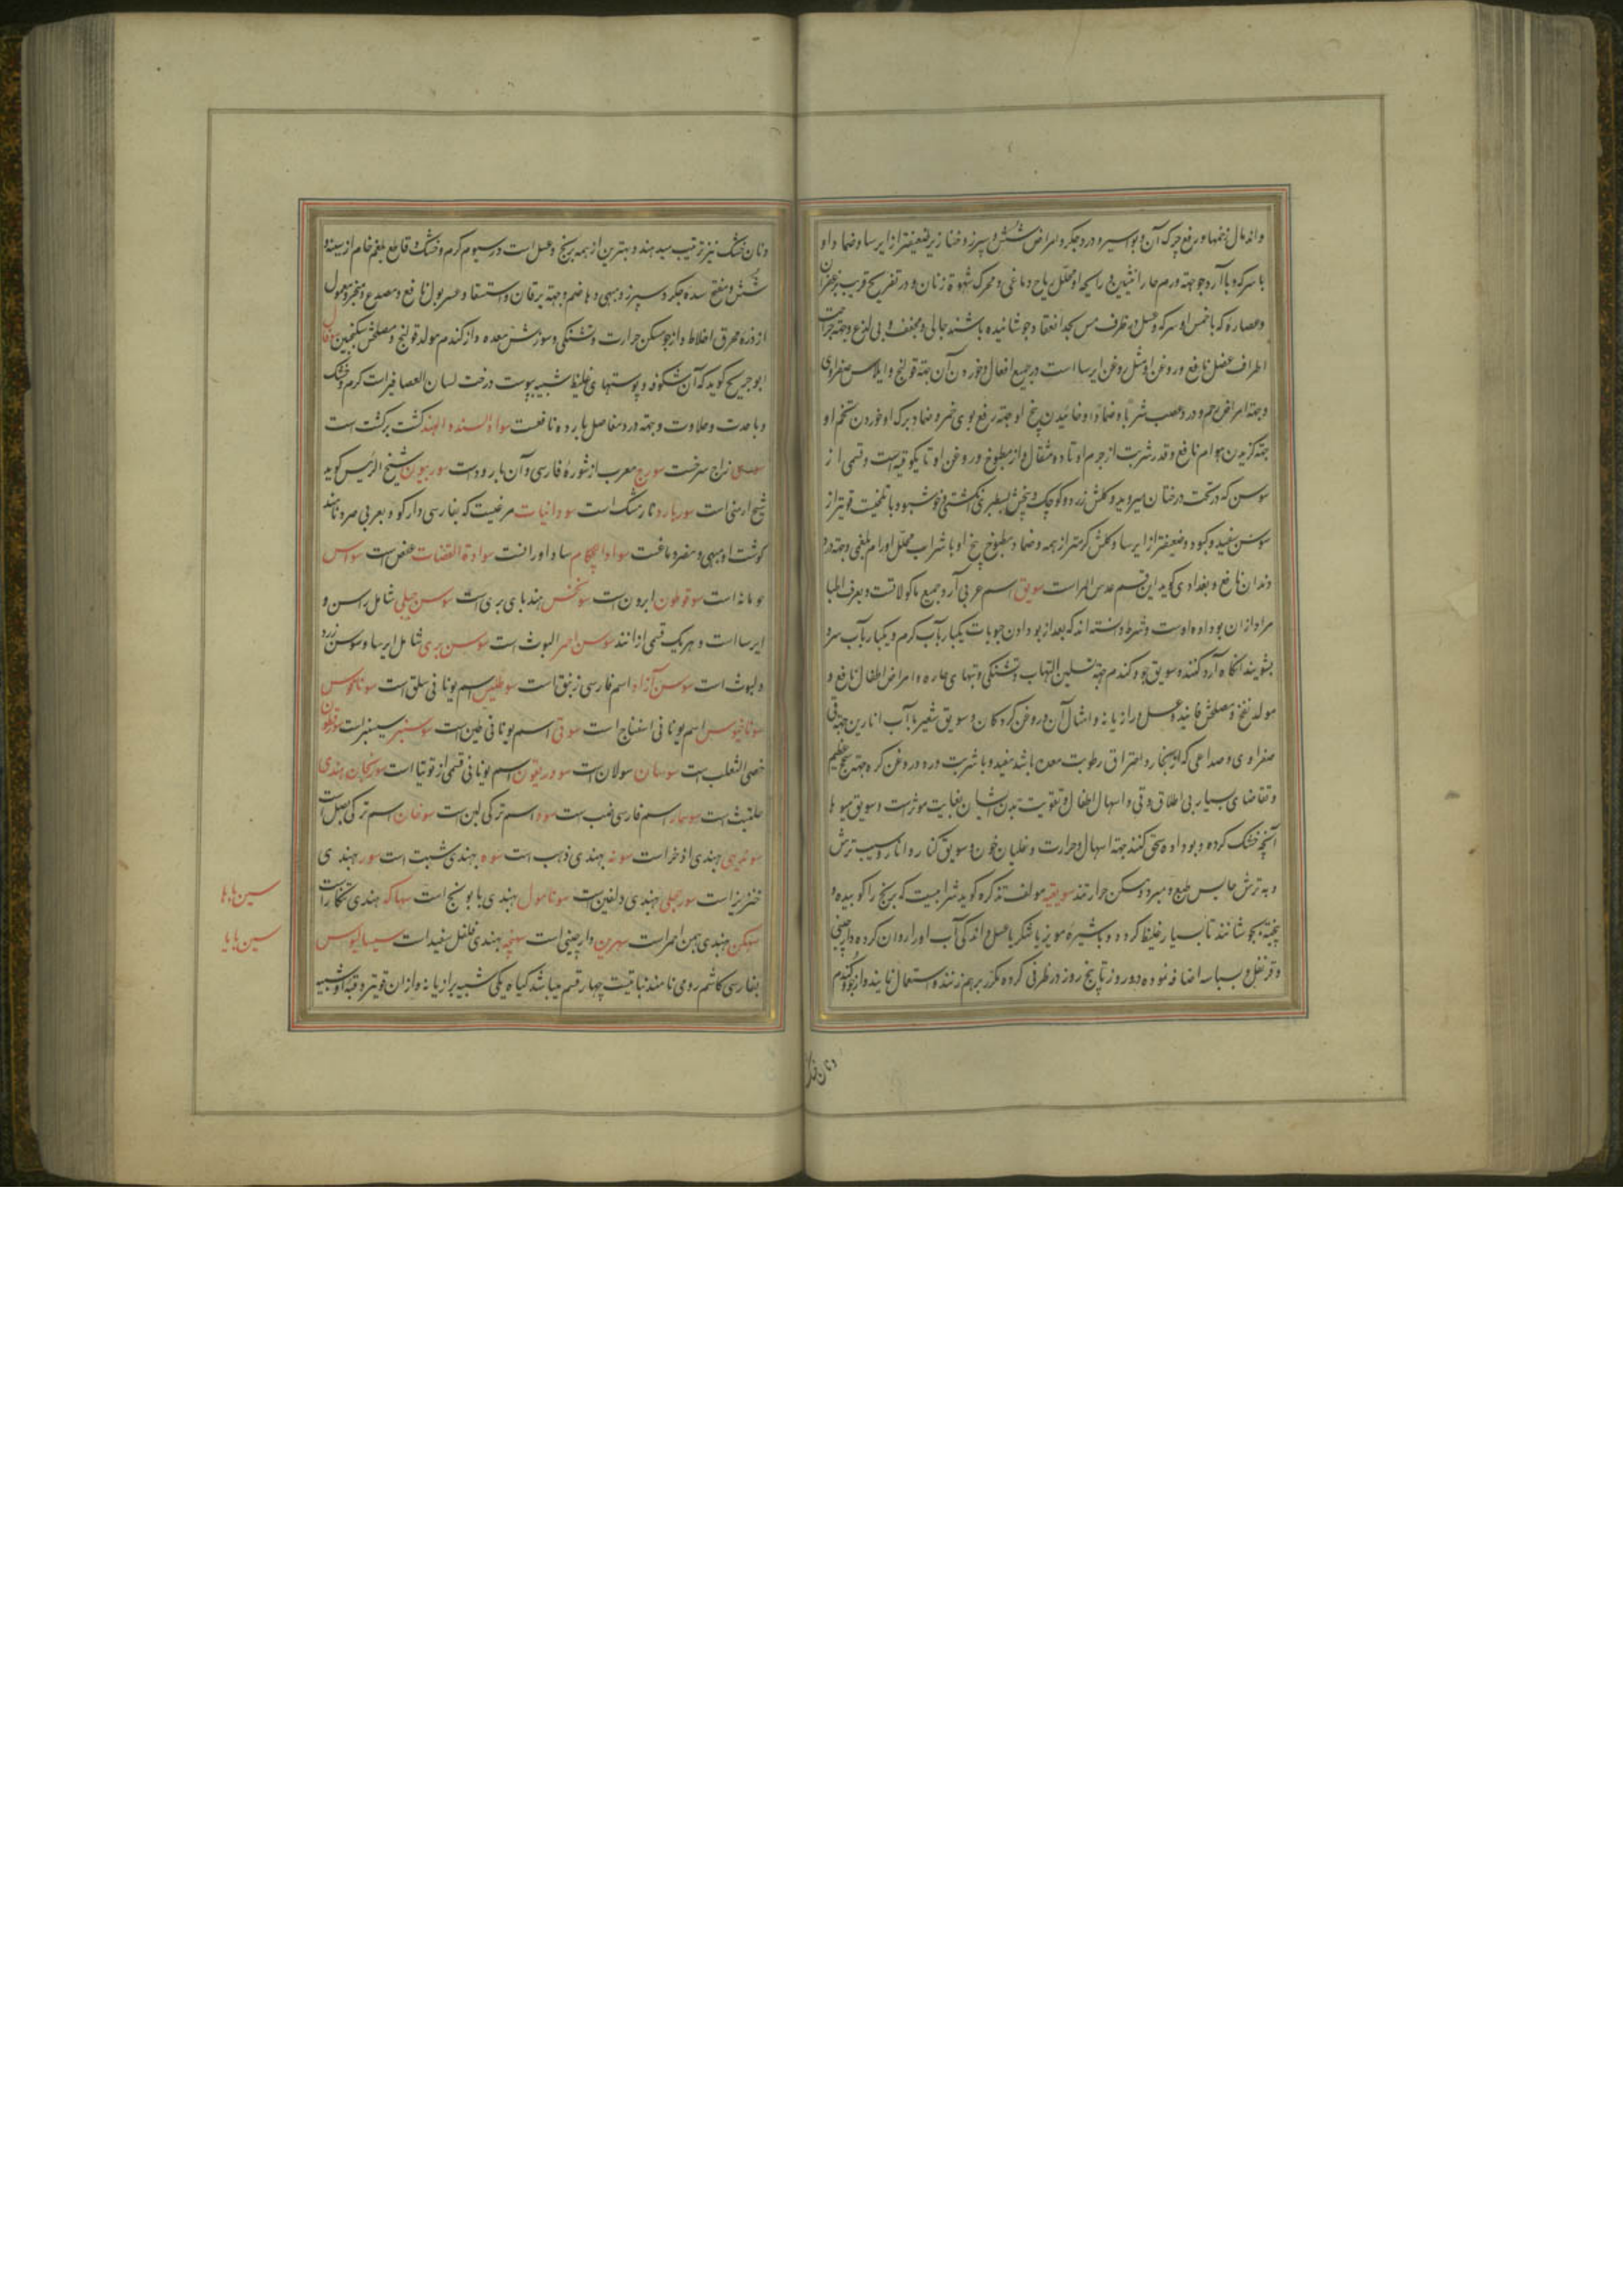 واندمال زخمها و رفع چرک آن و بواسیر و درد جگر و امراض شش و سپرز و خنازیر ضعیفتر از ایرسا و ضماد او
با سرکه و با آرد جو جهته ورم حار انثیین و رایحه او محلل ریاح دماغی و محرک شهوة زنان و در تفریح قریب بزعفران
و عصاره که با خمس او سرکه و عسل در ظرف مس بحد انعقاد جوشانیده باشند جالی و مجفف و بی لذع و جهته جراحت
اطراف عضل نافع و روغن او مثل روغن ایرسا است در جمیع افعال و خوردن آن جهته قولنج و ایلاوس صفراوی
و جهته امراض رحم و درد عصب شرباً و ضماداً و خائیدن بیخ او جهته رفع بوی خمر و ضماد برک او خوردن تخم او
جهته گزیدن هوام نافع و قدر شربت از جرم او تا ده مثقال و از مطبوخ و روغن او تا یکوقیه است و قسمی از
سوسن که در تحت درختان میروید و گلش زرد و کوچک و بیخش بسطبری انگشتی و خوشبو و با تلخیست قویتر از
سوسن سفید و کبود و ضعیفتر از ایرسا و گلش گرمتر از همه و ضماد مطبوخ بیخ او با شراب محلل اورام بلغمی و جهته درد
دندان نافع و بغدادی گوید این قسم عدس المر است سویق اسم عربی آرد جمیع ماکولاتست و بعرف اطبا
مراد از آن بو داده اوست و شرط دانسته اند که بعد از بو دادن حبوبات یکبار بآب گرم و یکبار بآب سرد
بشویند آنگاه آرد کنند و سویق جو و گندم جهته تسکین التهاب و تشنگی و تبهای حاره و امراض اطفال نافع و
مولد نفخ و مصلحش فانید و عسل و رازیانه و امثال آن و روغن گردکان و سویق شعیر با آب انارین جهته قی
صفراوی و صداعی که از بخار و احتراق رطوبت معده باشد مفید و با شربت ورد و روغن کره جهته سحج عظیم
و تقاضای بسیار بی اطلاق و قی و اسهال اطفال و تقویت بدن ایشان بغایت موثر است و سویق میوها
آنچه خشک کرده و بو داده سحق کنند جهته اسهال و حرارت و غلیان خون و سویق کنار و انار و سیب ترش
و به ترش حابس طبع و مبرد و مسکن حرارتند سویقیه مولف تذکره گوید شرابیست که برنج را کوبیده و
پخته بجوشانند تا بسیار غلیظ گردد و با شیره مویز یا شکر یا عسل و اندکی آب او را روان کرده دارچینی
و قرنفل و بسباسه اضافه نموده دو روز تا پنج روز در ظرفی کرده مکرر برهم زنند و استعمال نمایند و از جو و گندم
و نان خشک
و نان خشک نیز ترتیب میدهند و بهترین از همه برنج و عسل است در سیوم گرم و خشک و قاطع بلغم خام از سینه و
شش و مفتح سده جگر و سپرز و مبهی و هاضم و جهته یرقان و استسقا و عسر بول نافع و مصدع و مبخر و معمول
از ذره محرق اخلاط و از جو مسکن حرارت و تشنگی و سوزش معده و از گندم مولد قولنج و مصلحش سکنجبین سوفال
ابو جریح گوید که آن شکوفه و پوستهای غلیظ شبیه بپوست درخت لسان العصافیر است گرم و خشک
و با حدت و حلاوت و جهته درد مفاصل بارده نافعست سواد السند و الهند کشت برکشت است
سوری زاج سرخست سورج معرب از شوره فارسی و آن بارود است سوربیون شیخ الرئیس گوید
شیخ ارمنی است سورباره نارمشک است سودانیات مرغیست که بفارسی دارکو و بعربی صرد نامند
گوشت او مبهی و مضر دماغست سواد الحکام سداورانست سوادة القضات عفص است سواس
مومانه است سوفوطون ابرون است سونخس هندبای بری است سوسن جبلی شامل راسن و
ایرسا است و هریک قسمی از انند سوسن احمر البوث است سوسن بری شامل ایرسا و سوسن زرد
و لبوث است سوسن آزاد اسم فارسی زنبق است سوطلیس اسم یونانی سلق است سوناخوس
سونانیوس اسم یونانی اسفناج است سوقی اسم یونانی طین است سوسنبر سیسنبر است سوطرون
خصی الثعلب است سوسان سولان است سودریقون اسم یونانی قسمی از توتیا است سورنجان هندی
حلتیت است سوسمار اسم فارسی ضب است سود اسم ترکی لبن است سوغان اسم ترکی بصل است
هندی اذخر است سونه بهندی ذهب است سوه بهندی شبت است سور بهندی
خنزیر است سورجملی بهندی دلفین است سونامول بهندی بابونج است سهاکه بهندی تنکار است
سهکن بهندی بهمن احمر است سهرین دارچینی است سهنجه بهندی فلفل سفید است سیسالیوس
بفارسی کاشم رومی نامند نباتیست چهار قسم میباشد گیاه یکی شبیه برازیانه و از ان قویتر و قبه او شبیه
سین با ها
سین با یا